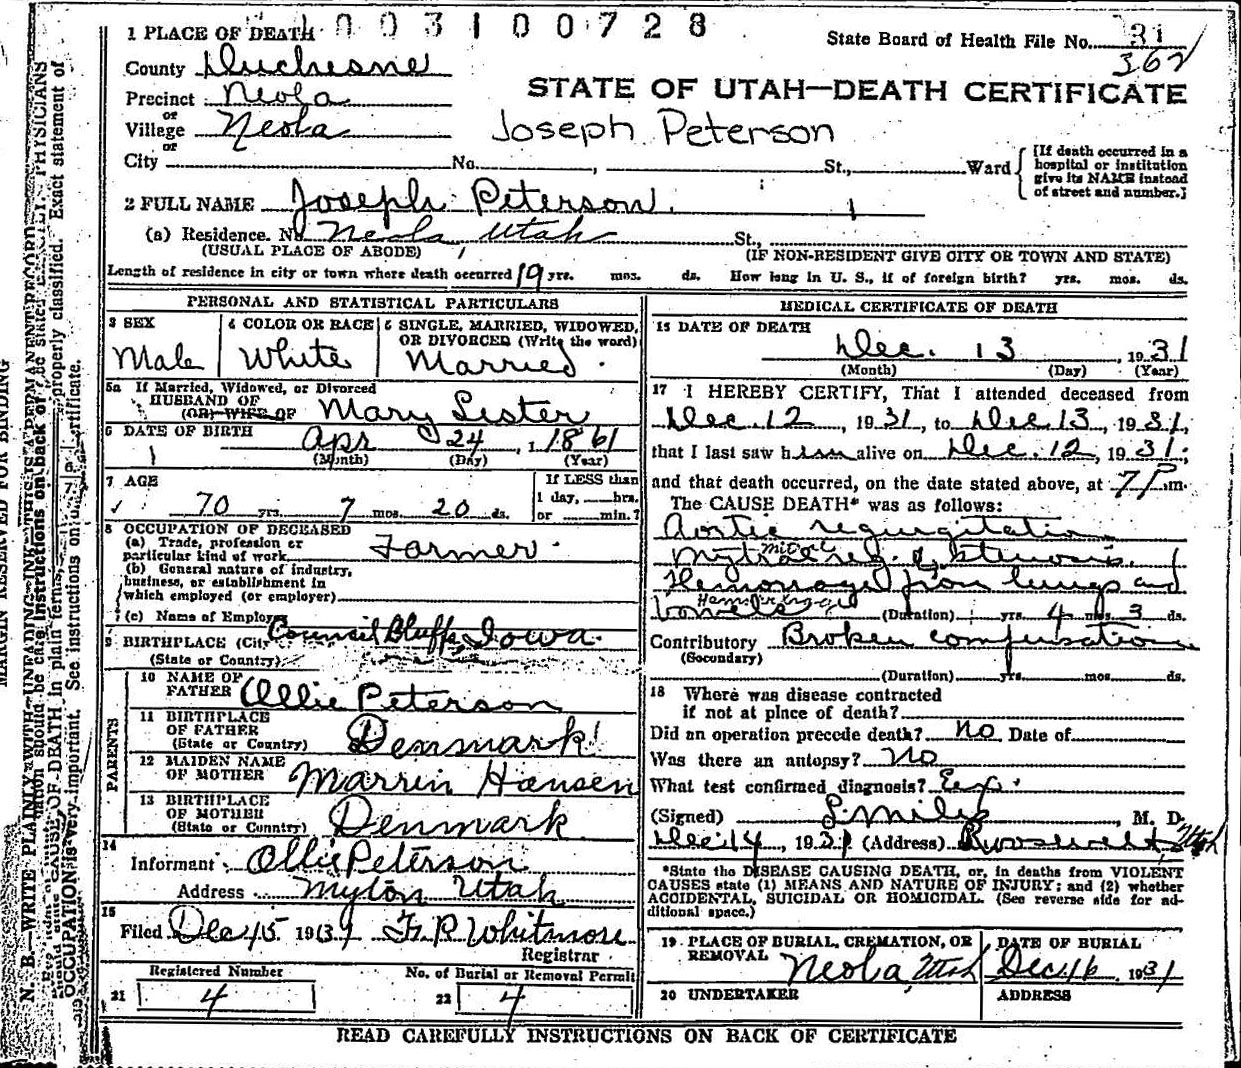 1 PLACE OF DEATH 003100728
State Board of Health File No. 31
362
County Duchesne
STATE OF UTAH—DEATH CERTIFICATE
Precinct Neola
or
Village Neola
Joseph Peterson
or
City No. , St., Ward
[If death occurred in a hospital or institution give its NAME instead of street and number.]
2 FULL NAME Joseph Peterson
(a) Residence. No. Neola Utah St.,
(USUAL PLACE OF ABODE) (IF NON-RESIDENT GIVE CITY OR TOWN AND STATE)
Length of residence in city or town where death occurred 19 yrs. mos. ds. How long in U. S., if of foreign birth? yrs. mos. ds.
PERSONAL AND STATISTICAL PARTICULARS
3 SEX
Male
4 COLOR OR RACE
White
5 SINGLE, MARRIED, WIDOWED,
OR DIVORCED (Write the word)
Married
5a If Married, Widowed, or Divorced
HUSBAND OF
(OR) WIFE OF Mary Lister
6 DATE OF BIRTH Apr 24, 1861
(Month) (Day) (Year)
7 AGE
70 yrs. 7 mos. 20 ds.
If LESS than
1 day, hrs.
or min.?
8 OCCUPATION OF DECEASED
(a) Trade, profession or
particular kind of work Farmer
(b) General nature of industry,
business, or establishment in
which employed (or employer)
(c) Name of Employer
9 BIRTHPLACE (City Council Bluffs, Iowa.
(State or Country)
PARENTS
10 NAME OF
FATHER Ollie Peterson
11 BIRTHPLACE
OF FATHER
(State or Country) Denmark
12 MAIDEN NAME
OF MOTHER Marrin Hansen
13 BIRTHPLACE
OF MOTHER
(State or Country) Denmark
14
Informant Ollie Peterson
Address Myton Utah
15
Filed Dec 15 1931 F. R. Whitmore
Registrar
Registered Number
21 4
No. of Burial or Removal Permit
22 4
MEDICAL CERTIFICATE OF DEATH
15 DATE OF DEATH
Dec. 13, 1931
(Month) (Day) (Year)
17 I HEREBY CERTIFY, That I attended deceased from
Dec. 12, 1931, to Dec. 13, 1931,
that I last saw him alive on Dec. 12, 1931;
and that death occurred, on the date stated above, at 7 P.m.
The CAUSE DEATH* was as follows:
Aortic regurgitation
mitral
Mytral reg. & stenosis.
Hemorraged from lungs and
bowels (Duration) yrs. 4 mos. 3 ds.
Contributory Broken compensation
(Secondary)
(Duration) yrs. mos. ds.
18 Where was disease contracted
if not at place of death?
Did an operation precede death? no Date of
Was there an autopsy? no
What test confirmed diagnosis? Ex.
(Signed) L. Miles, M. D.
Dec 14, 1931 (Address) Roosevelt, Utah
*State the DISEASE CAUSING DEATH, or, in deaths from VIOLENT
CAUSES state (1) MEANS AND NATURE OF INJURY; and (2) whether
ACCIDENTAL, SUICIDAL OR HOMICIDAL. (See reverse side for ad-
ditional space.)
19 PLACE OF BURIAL, CREMATION, OR
REMOVAL Neola, Utah
DATE OF BURIAL
Dec 16 1931
20 UNDERTAKER
ADDRESS
READ CAREFULLY INSTRUCTIONS ON BACK OF CERTIFICATE
MARGIN RESERVED FOR BINDING
N. B.—WRITE PLAINLY WITH UNFADING INK—THIS IS A PERMANENT RECORD.
PHYSICIANS should state CAUSE OF DEATH in plain terms,
properly classified. Exact statement of
OCCUPATION is very important. See instructions on back of certificate.